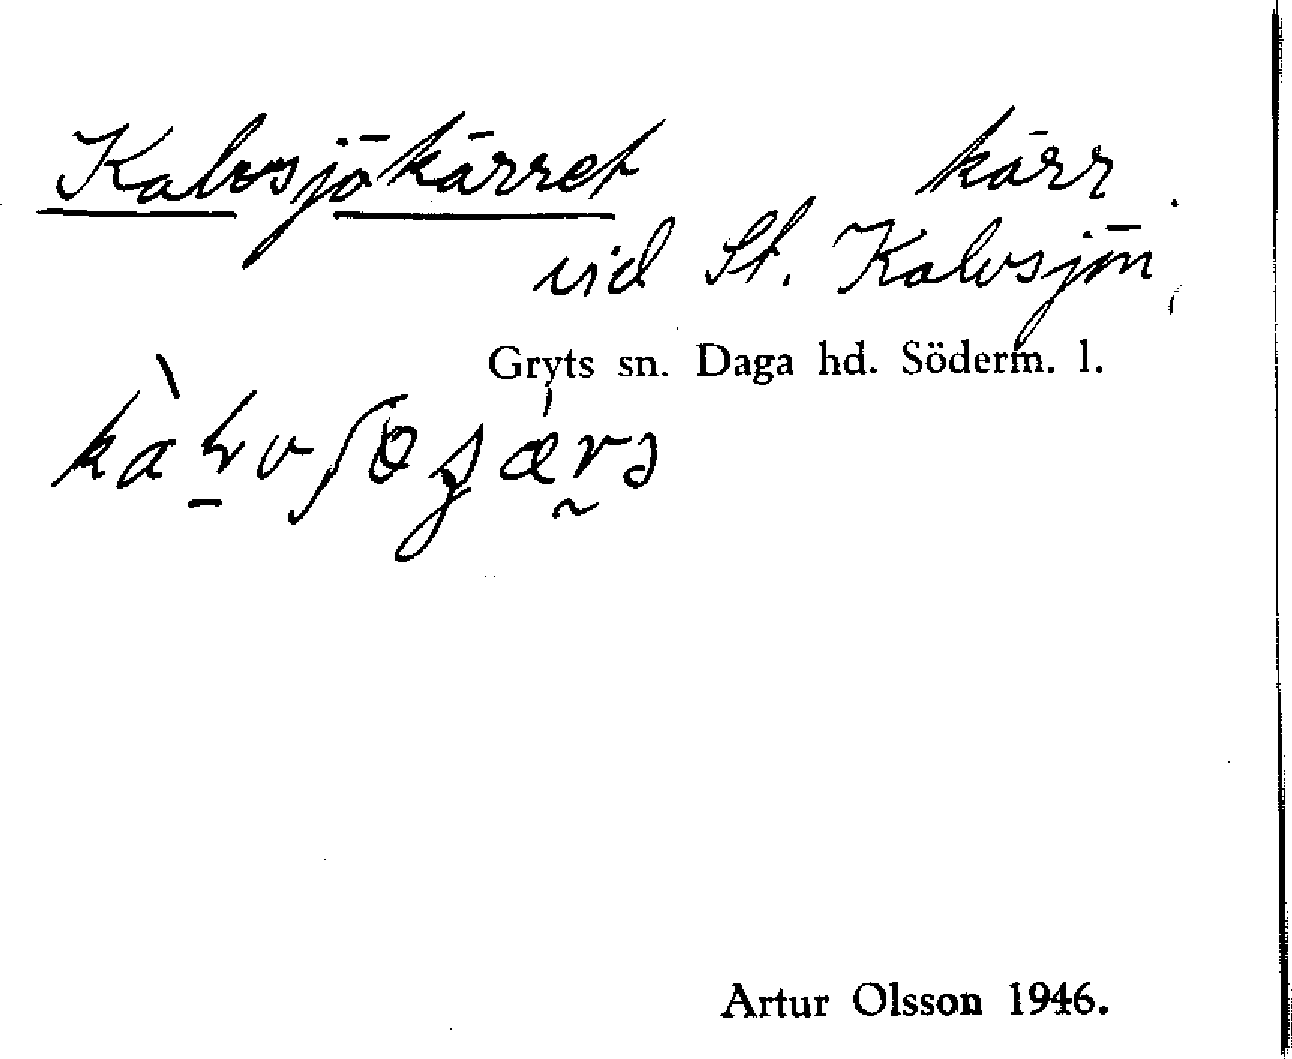 Kalvsjökärret kärr
vid St. Kalvsjön
Gryts sn. Daga hd. Söderm. l.
Artur Olsson 1946.